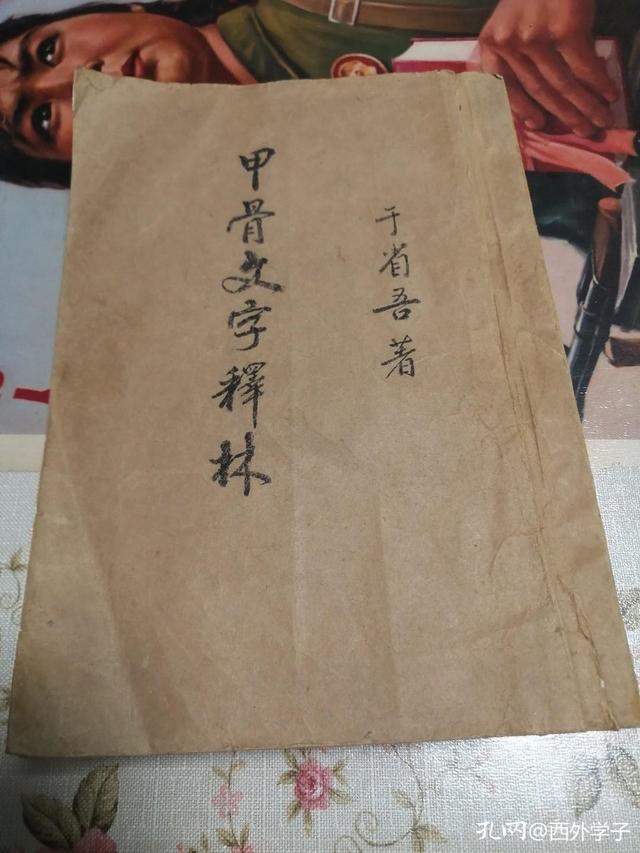 于省吾著
甲骨文字釋林
孔网@西外学子